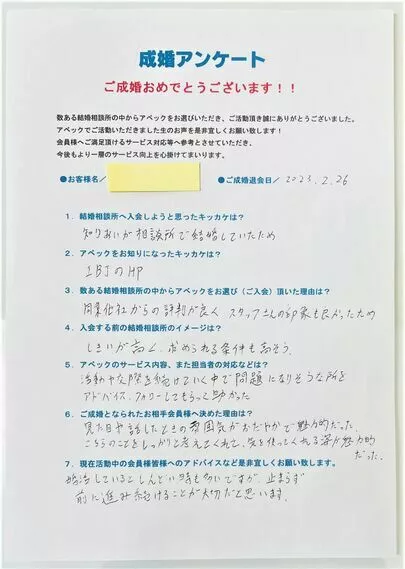 成婚アンケート
ご成婚おめでとうございます！！
数ある結婚相談所の中からアペックをお選びいただき、ご活動頂き誠にありがとうございました。
アペックでご活動いただきました生のお声を是非宜しくお願い致します！
会員様へご満足頂けるサービス対応等へ参考とさせていただき、
今後もより一層のサービス向上を心掛けてまいります。
●お客様名／ ●ご成婚退会日／ 2023.2.26
1．結婚相談所へ入会しようと思ったキッカケは？
知りあいが相談所で結婚していたため
2．アペックをお知りになったキッカケは？
IBJのHP
3．数ある結婚相談所の中からアペックをお選び（ご入会）頂いた理由は？
同業他社からの評判が良く スタッフさんの印象も良かったため
4．入会する前の結婚相談所のイメージは？
しきいが高く、求められる条件も高そう。
5．アペックのサービス内容、また担当者の対応などは？
活動や交際を続けていく中で問題になりそうな所を
アドバイス、フォローしてもらって助かった
6．ご成婚となられたお相手会員様へ決めた理由は？
見た目や話したときの雰囲気がおだやかで魅力的だった。
こちらのことをしっかりと考えてくれて、気を使ってくれる姿が魅力的
だった。
7．現在活動中の会員様皆様へのアドバイスなど是非宜しくお願い致します。
婚活しているとしんどい時も多いですが、止まらず
前に進み続けることが大切だと思います。